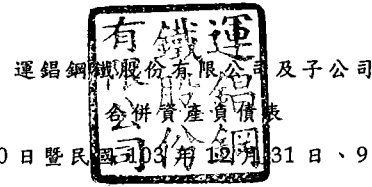 運錩鋼鐵股份有限公司及子公司
合併資產負債表
0日暨民國103年12月31日、9
運錩鋼
鐵股份
有限公司